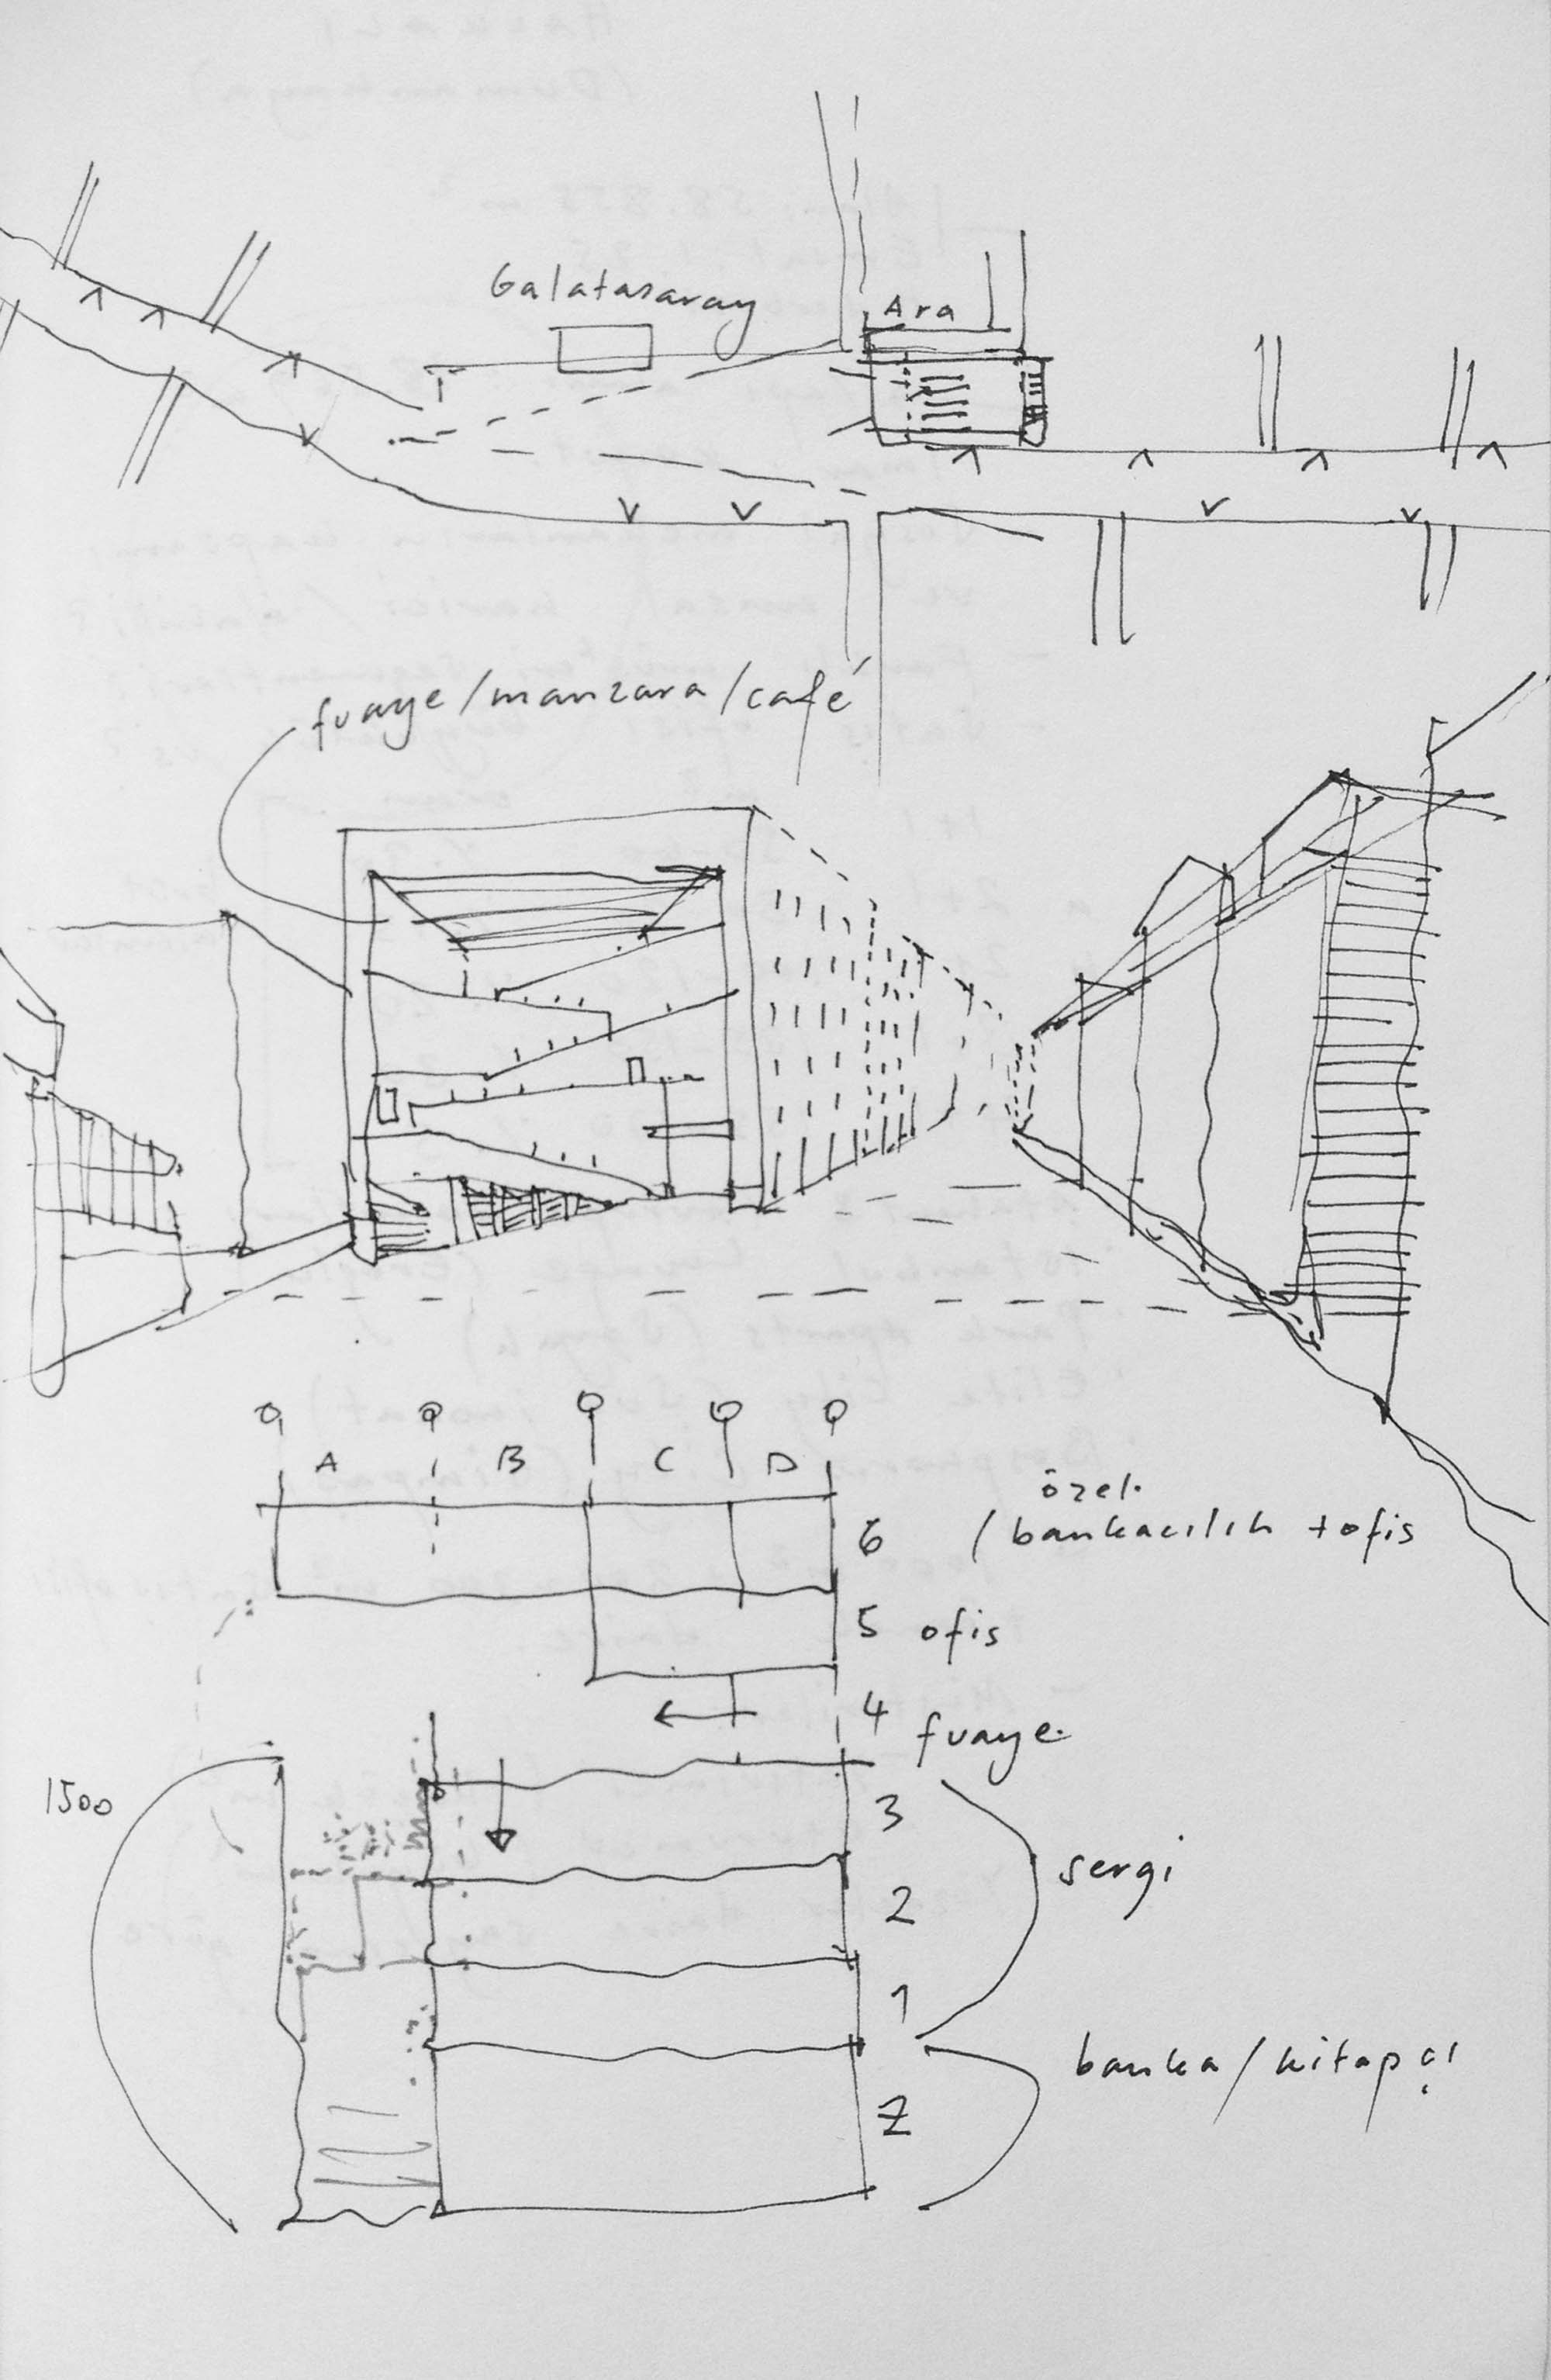 Galatasaray
Ara
fuaye/manzara/café
A B C D
özel
6 / bankacılık + ofis
5 ofis
4 fuaye
1500
3
sergi
2
1
banka/kitapçı
Z